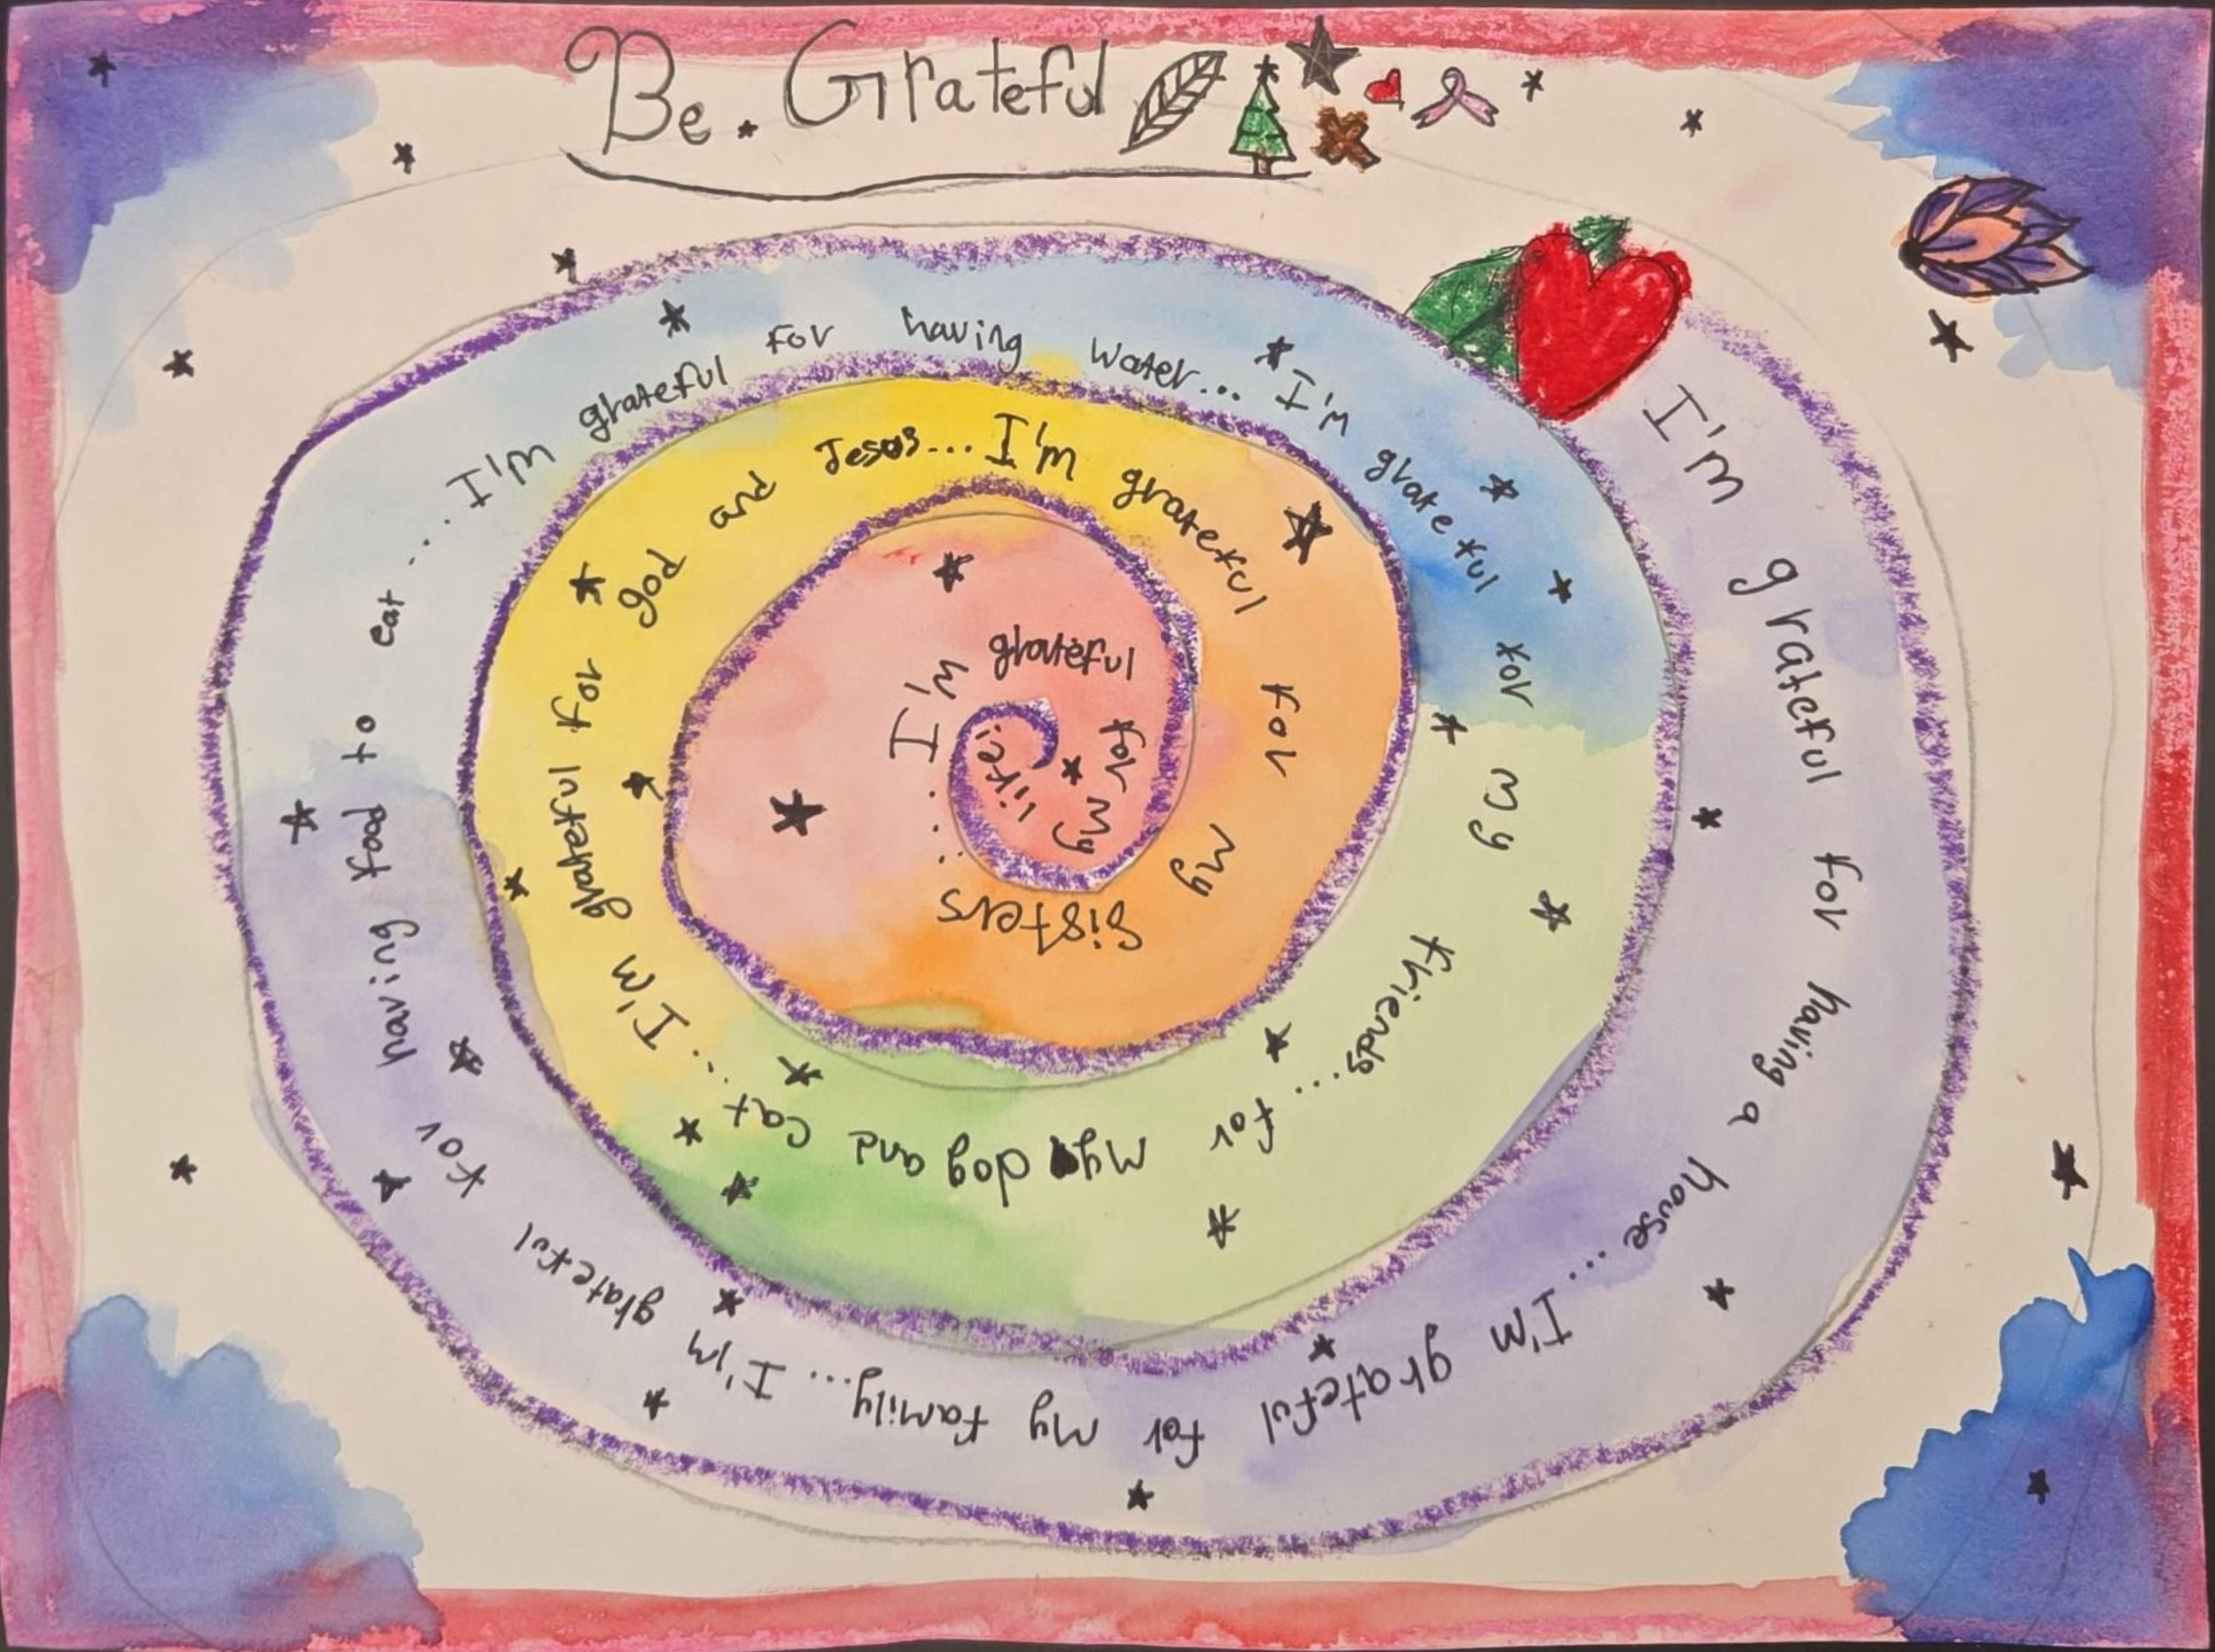 Be. Grateful
I'm grateful for having a house...
I'm grateful for my family...
I'm grateful for having food to eat....
I'm grateful for having water...
I'm grateful for my friends...
for my dog and cat...
I'm grateful for god and Jesus...
I'm grateful for my sisters....
I'm grateful for my life!